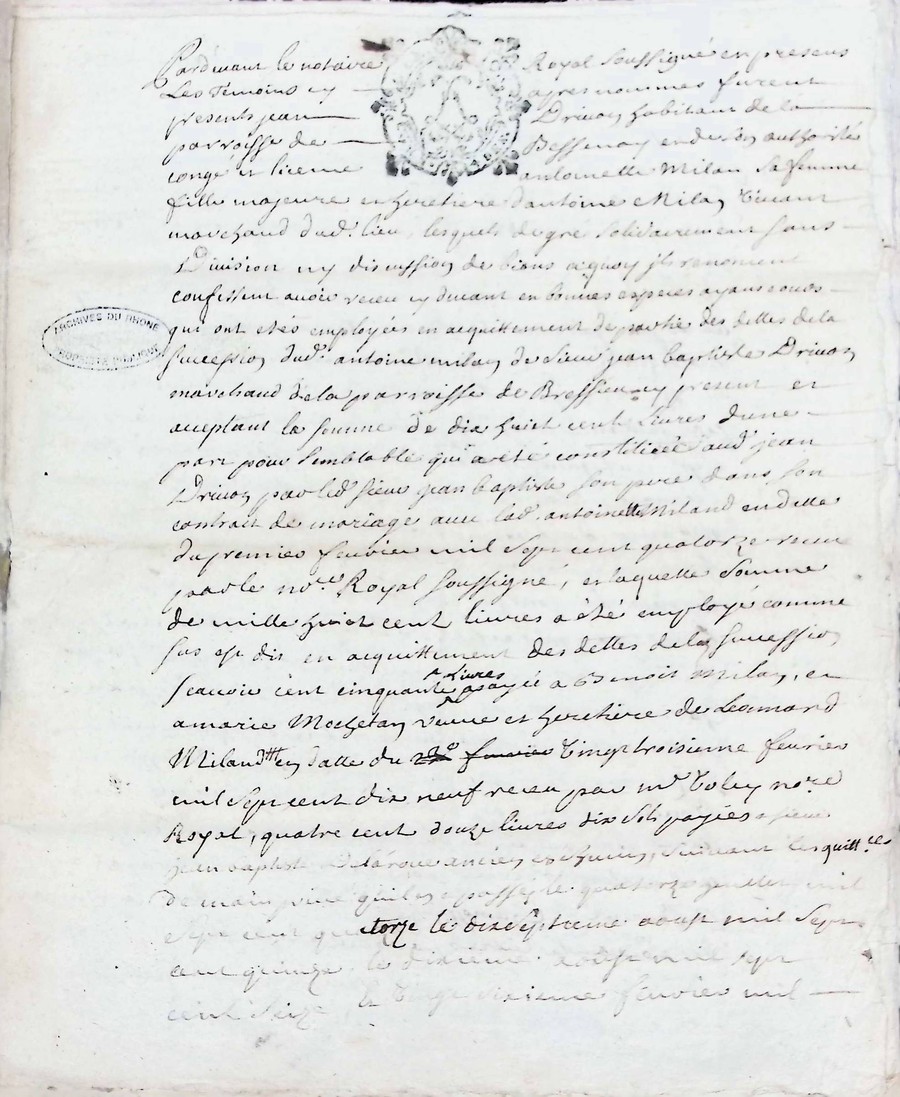 Pardevant le notaire Royal soussigné en presens
Les témoins cy apres nommes furent
presents jean Drivon habitant de la
parroisse de Bessenay et de son authorité
congé et licence antoinette Milan sa femme
fille majeure et heretiere d'antoine Milan vivant
marchand dud. lieu, lesquels de gré solidairement sans
Division ny discussion de biens a quoy ils renoncent
confessent avoir receu cy devant en bonnes especes ayans cours
qui ont etés employées en acquittement de partie des dettes de la
succession dud. antoine milan de sieur jean baptiste Drivon
marchand de la parroisse de Bressieu cy present et
acceptant la somme de dix huict cent livres d'une
part pour semblable qui a été constituée aud. jean
Drivon par led. sieur jean baptiste son pere dans son
contrait de mariage avec lad. antoinette Miland en datte
du premier fevrier mil sept cent quatorze receu
par le no.re Royal soussigné, et laquelle somme
de mille huict cent livres a été employé comme
sus est dit en acquittement des dettes de la succession
scavoir cent cinquante livres payée a Benoit Milan, et
a marie Mochetan veuve et heretiere de Leonard
Miland en datte du fevrier vingt troisieme fevrier
mil sept cent dix neuf receu par me no.re
Royal, quatre cent douze livres dix sols payées a sieur
jean baptiste ancien echevin, suivant les quitt.ces
de main privé qu'il a passé le quatorze juillet mil
sept cent quatorze le dix septieme aoust mil sept
cent quinze le dixieme aoust mil sept
cent seize, le vingt sixieme fevrier mil
ARCHIVES DU RHONE